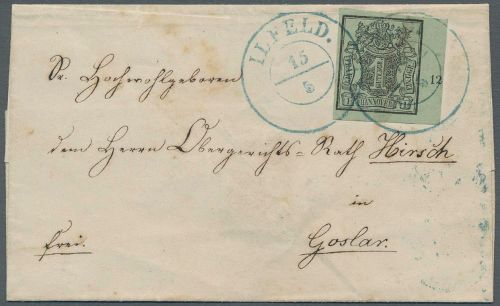 ILFELD.
15
5
12
HANNOVER
Sr. Hochwohlgeboren
dem Herrn Obergerichts=Rath Hirsch
in
frei.
Goslar.